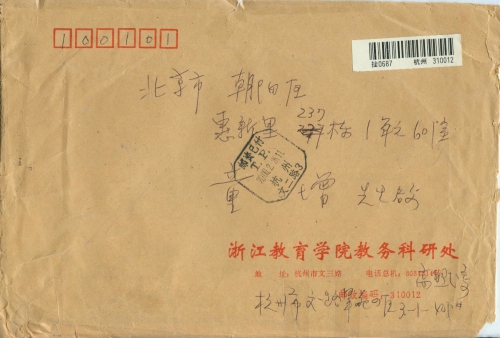 100101
挂0687 杭州 310012
北京市 朝阳区
惠新里 237栋1单元601室
邮资已付
T.P.
杭州
文二路3
董 曾 先生 启
浙江教育学院教务科研处
地 址:杭州市文三路 电话总机:
邮政编码 310012
杭州市文 区3-1-401